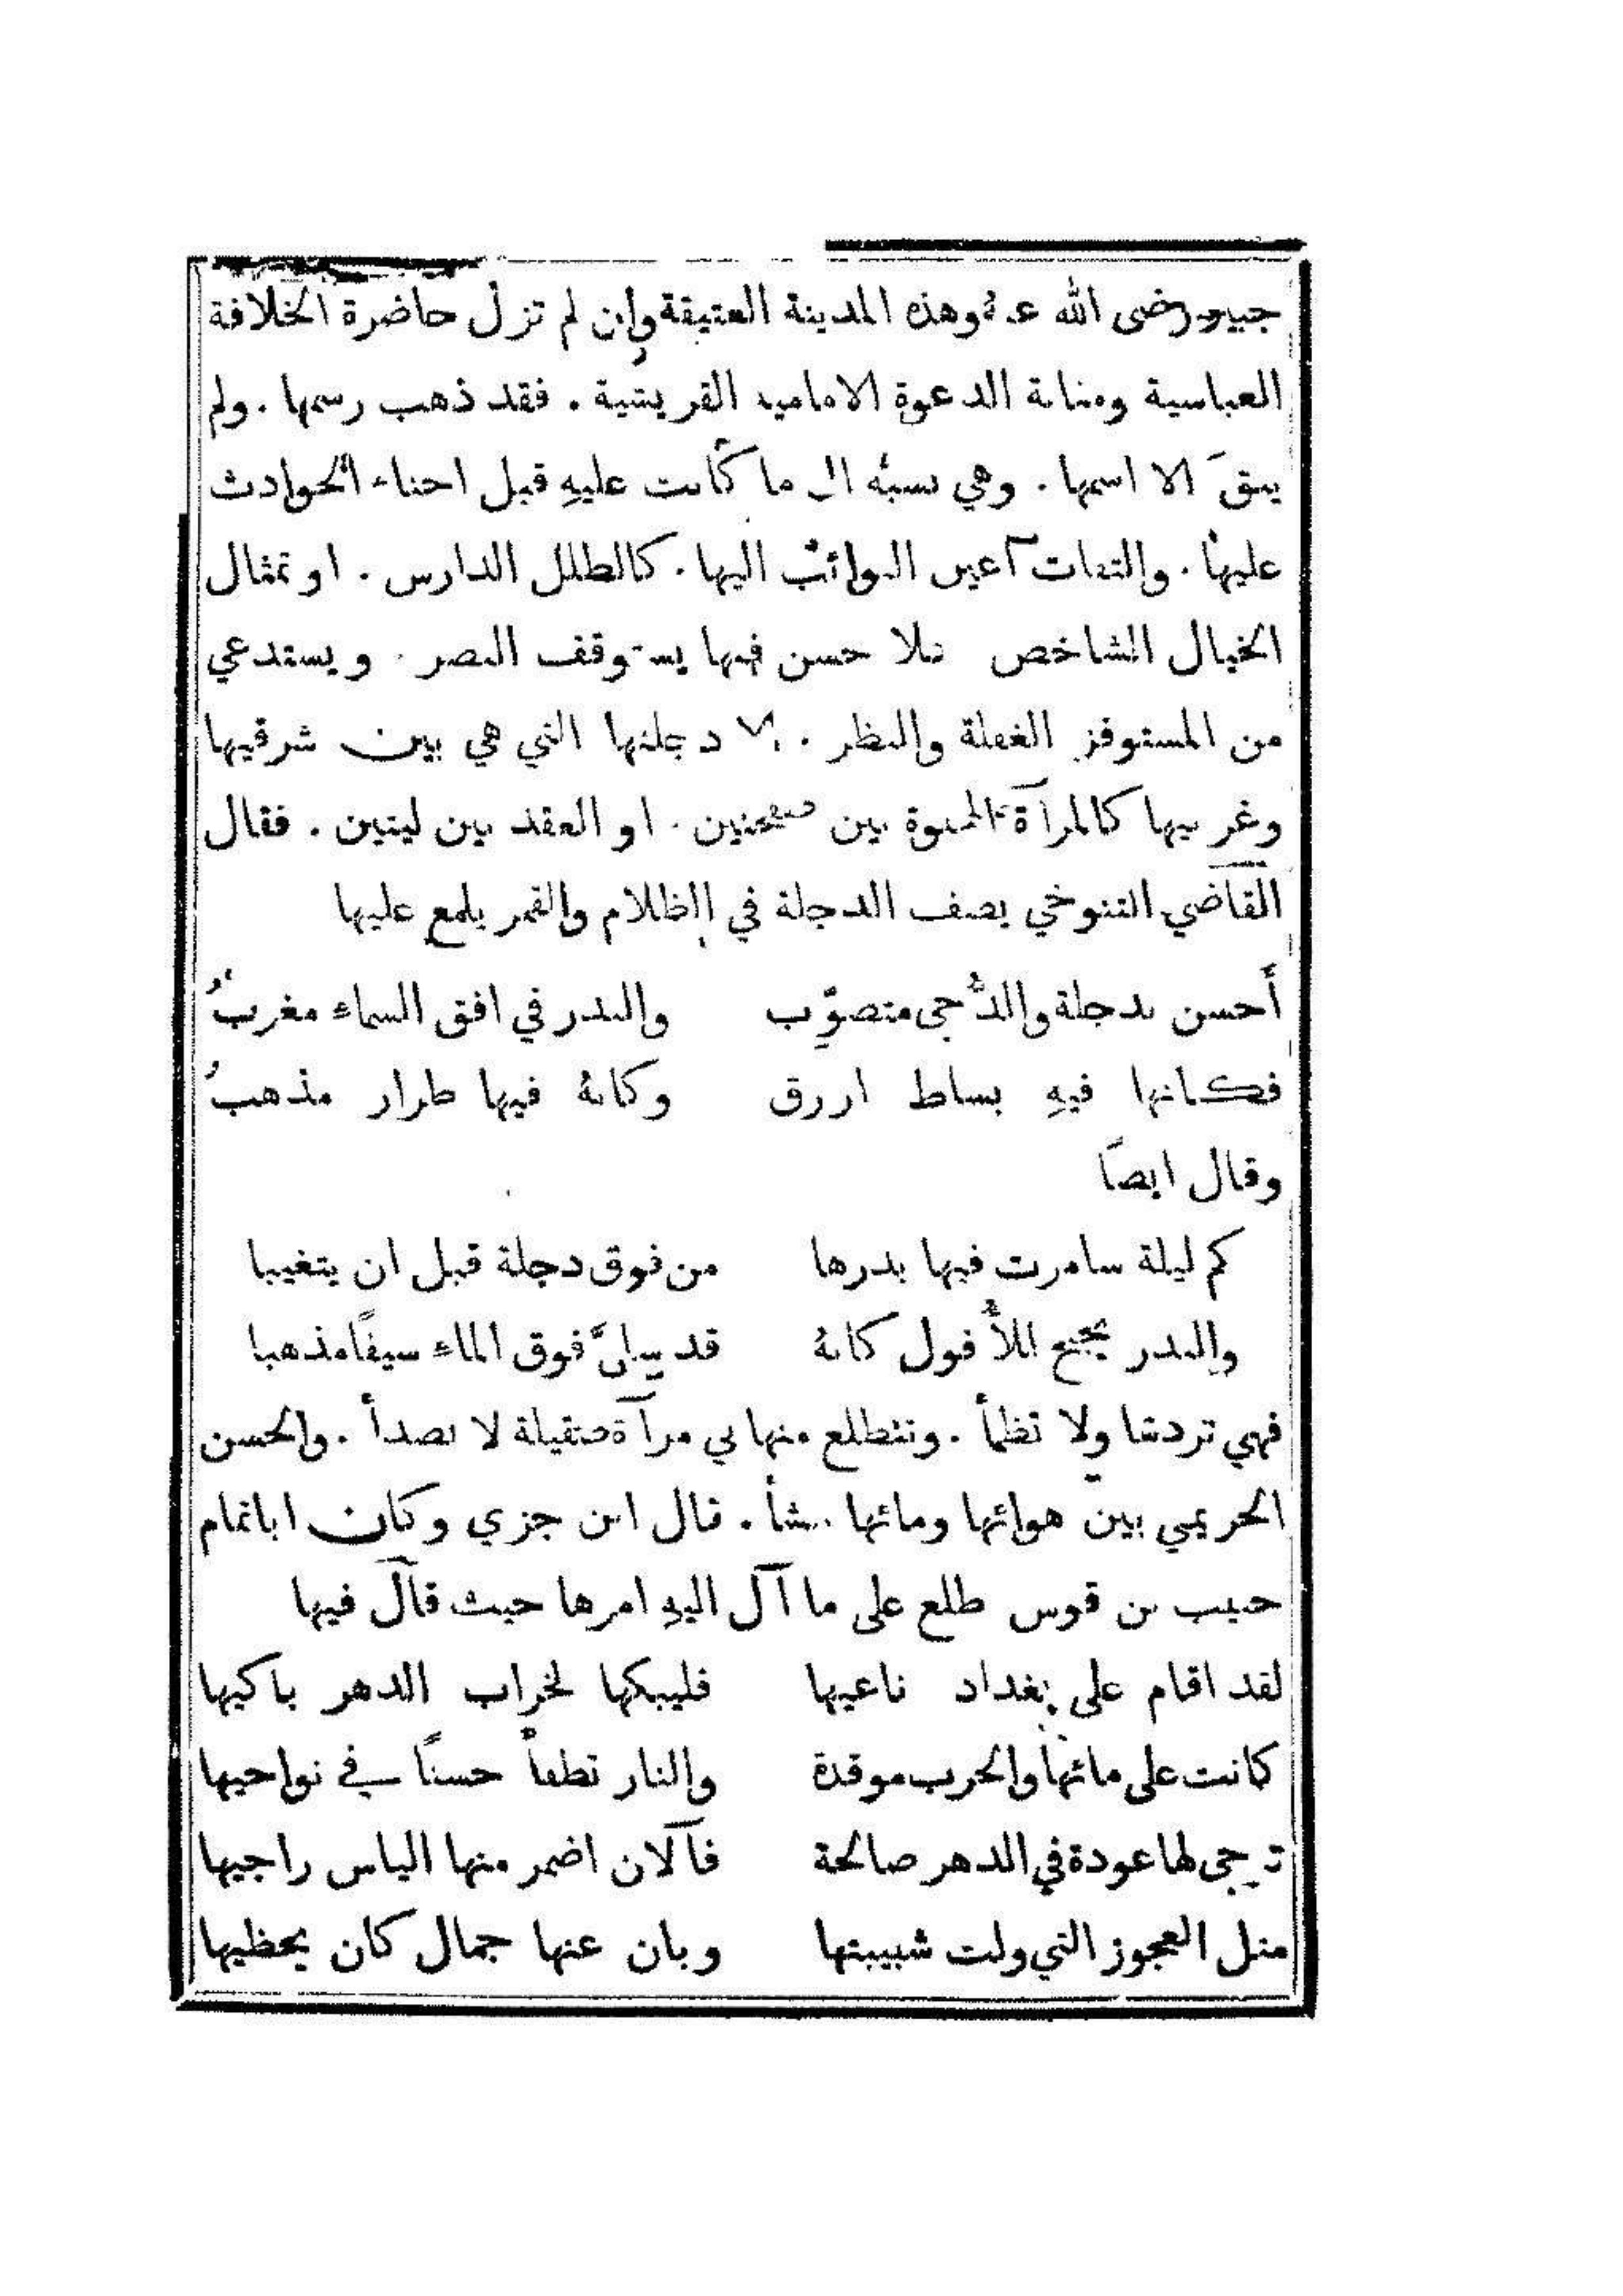 جبير رضى الله عنهُ وهذه المدينة العتيقة وإن لم تزل حاضرة الخلافة
العباسية ومثابة الدعوة الامامية القريشية . فقد ذهب رسمها . ولم
يبقَ الا اسمها . وهي نسبة الى ما كانت عليهِ قبل احناء الحوادث
عليها . والتفات أعين النوائب اليها . كالطلل الدارس . او تمثال
الخيال الشاخص فلا حسن فيها يستوقف البصر . ويستدعي
من المستوفز الغفلة والنظر . الا دجلتها التي هي بين شرقيها
وغربيها كالمرآة المجلوة بين صفحتين . او العقد بين لبتين . فقال
القاضي التنوخي يصف الدجلة في الظلام والقمر يلمع عليها
أَحسن بدجلة والدُّجى متصوّب والبدر في افق السماء مغربُ
فكانها فيهِ بساط ازرق وكانهُ فيها طراز مذهبُ
وقال ايضاً
كم ليلة سامرت فيها بدرها من فوق دجلة قبل ان يتغيبا
والبدر يجنح للأُفول كانهُ قد سلَّ فوق الماء سيفًا مذهبا
فهي تردها ولا تظمأ . وتتطلع منها في مرآة صقيلة لا تصدأ . والحسن
الحريمي بين هوائها ومائها ينشأ . قال ابن جزي وكان ابا تمام
حبيب بن قوس طلع على ما آل اليهِ امرها حيث قال فيها
لقد اقام على بغداد ناعيها فليبكها لخراب الدهر باكيها
كانت على مائها والحرب موقدة والنار تطفأ حسنًا في نواحيها
ترجى لها عودة في الدهر صالحة فالآن اضمر منها الياس راجيها
مثل العجوز التي ولت شبيبتها وبان عنها جمال كان يحظيها